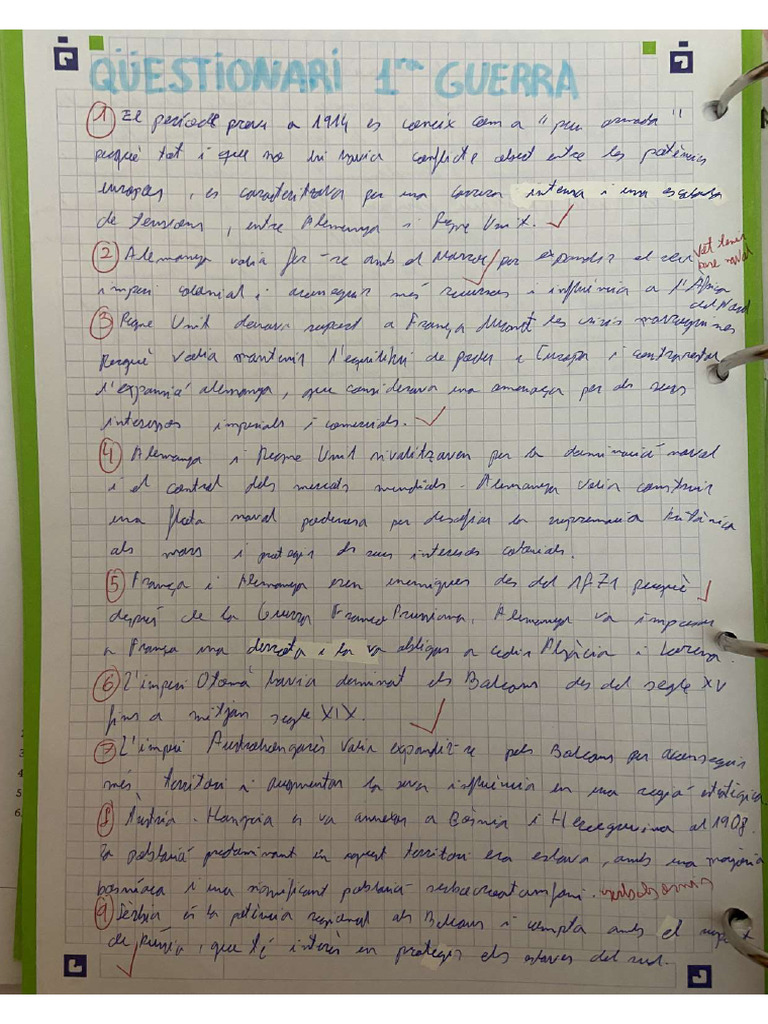 QÜESTIONARI 1ra GUERRA
1 El període previ a 1914 es coneix com a "pau armada"
perquè tot i que no hi havia conflicte obert entre les potències
europees, es caracteritzava per una carrera intensa i una escalada
de tensions, entre Alemanya i Regne Unit.
2 Alemanya volia fer-se amb el Marroc per expandir el seu
imperi colonial i aconseguir més recursos i influència a l'Àfrica
del Nord
3 Regne Unit donava suport a França durant les crisis marroquines
perquè volia mantenir l'equilibri de poder a Europa i contrarestar
l'expansió alemanya, que considerava una amenaça per als seus
interessos imperials i comercials.
4 Alemanya i Regne Unit rivalitzaven per la dominació naval
i el control dels mercats mundials. Alemanya volia construir
una flota naval poderosa per desafiar la supremacia britànica
als mars i protegir els seus interessos colonials.
5 França i Alemanya eren enemigues des del 1871 perquè
després de la Guerra Franco Prusiana, Alemanya va imposar
a França una derrota i la va obligar a cedir Alsàcia i Lorena.
6 L'imperi Otomà havia dominat els Balcans des del segle XV
fins a mitjan segle XIX.
7 L'imperi Austrohongarès volia expandir-se pels Balcans per aconseguir
més territori i augmentar la seva influència en una regió estratègica.
8 Àustria-Hongria es va annexar a Bòsnia i Hercegovina al 1908.
la població predominant en aquest territori era eslava, amb una majoria
bosníaca i una significant població serbocroat
9 Sèrbia és la potència regional als Balcans i compta amb el suport
de Rússia, que té interès en protegir els eslaus del sud.